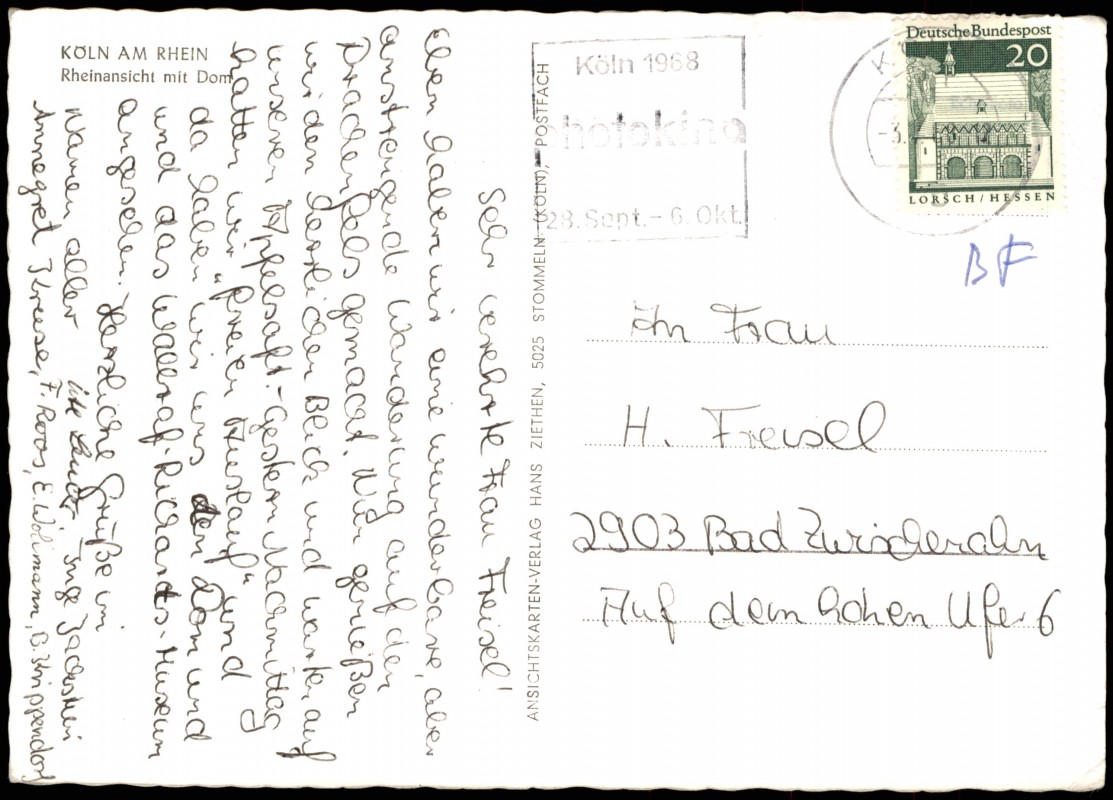 KÖLN AM RHEIN
Rheinansicht mit Dom
Sehr verehrte Frau Freisel!
Eben haben wir eine wunderbare, aber
anstrengende Wanderung auf den
Drachenfels gemacht. Wir genießen
wieder herrlichen Blick und warten auf
unseren Apfelsaft.- Gestern Nachmittag
hatten wir "freien Auslauf" und
da haben wir uns den Dom und
und das Wallraf-Richartz-Museum
angesehen. Herzliche Grüße im
Namen aller Inge
Annegret F. Roos, E. Wollmann, B. Krippendorf
ANSICHTSKARTEN-VERLAG HANS ZIETHEN, 5025 STOMMELN (KÖLN), POSTFACH
Köln 1968
photokina
28. Sept. - 6. Okt.
Deutsche Bundespost
20
LORSCH/HESSEN
-3.
BF
In Frau
H. Freisel
2903 Bad Zwischenahn
Auf dem hohen Ufer 6